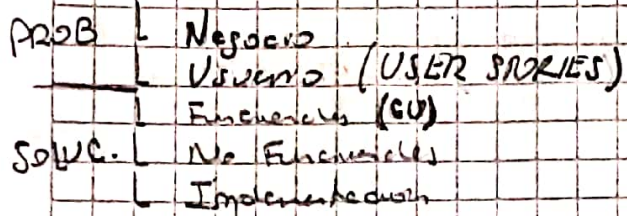 PROB Negocio
Usuario (USER STORIES)
Funcionales (CU)
SOLUC. No Funcionales
Implementacion